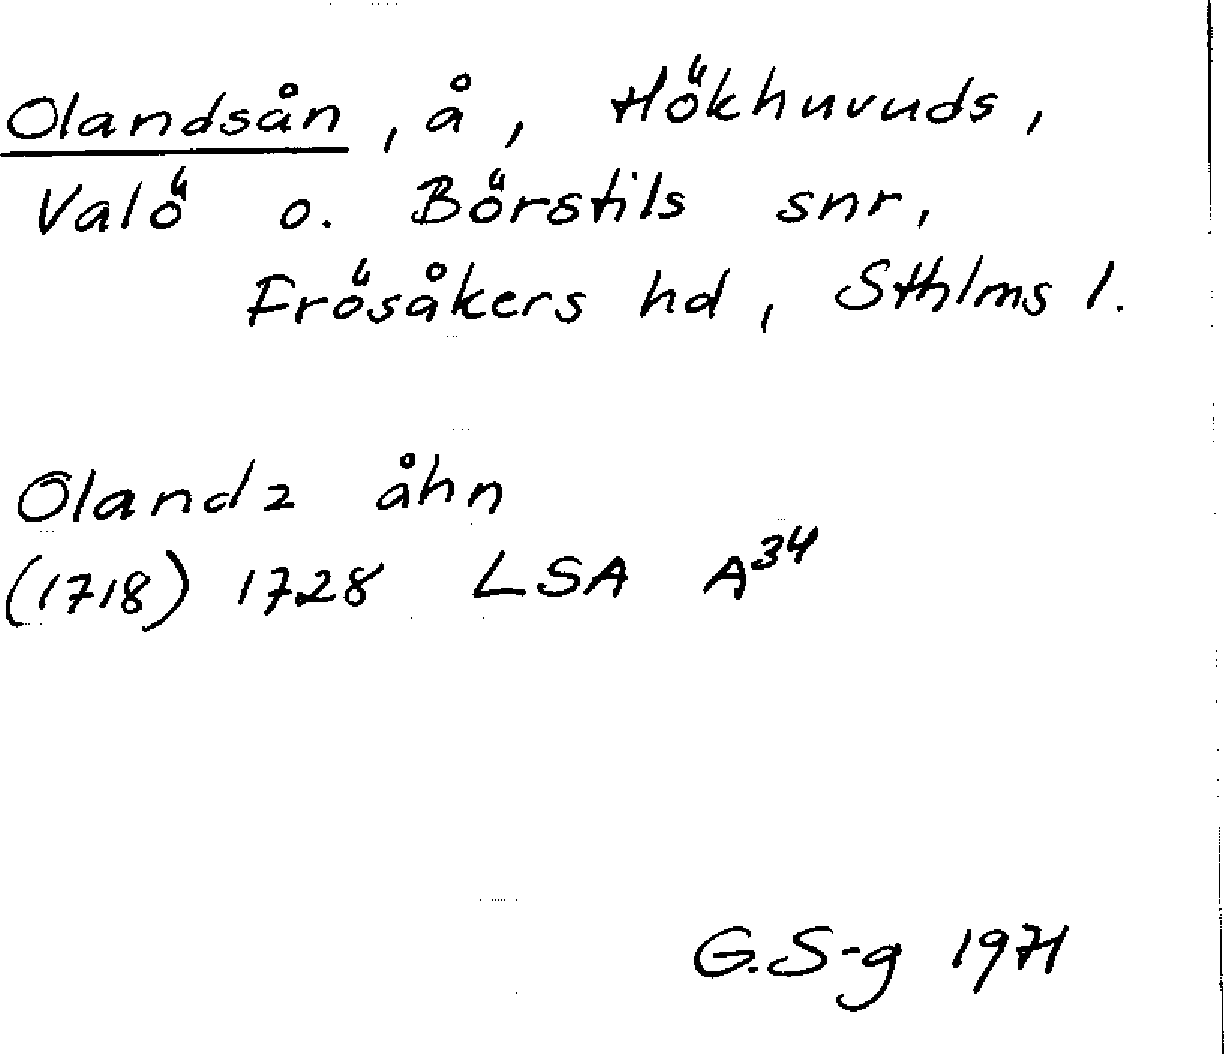 Olandsån, å, Hökhuvuds,
Valö o. Börstils snr,
Frösåkers hd, Sthlms l.
Olandz åhn
(1718) 1728 LSA A34
G.S-g 1971